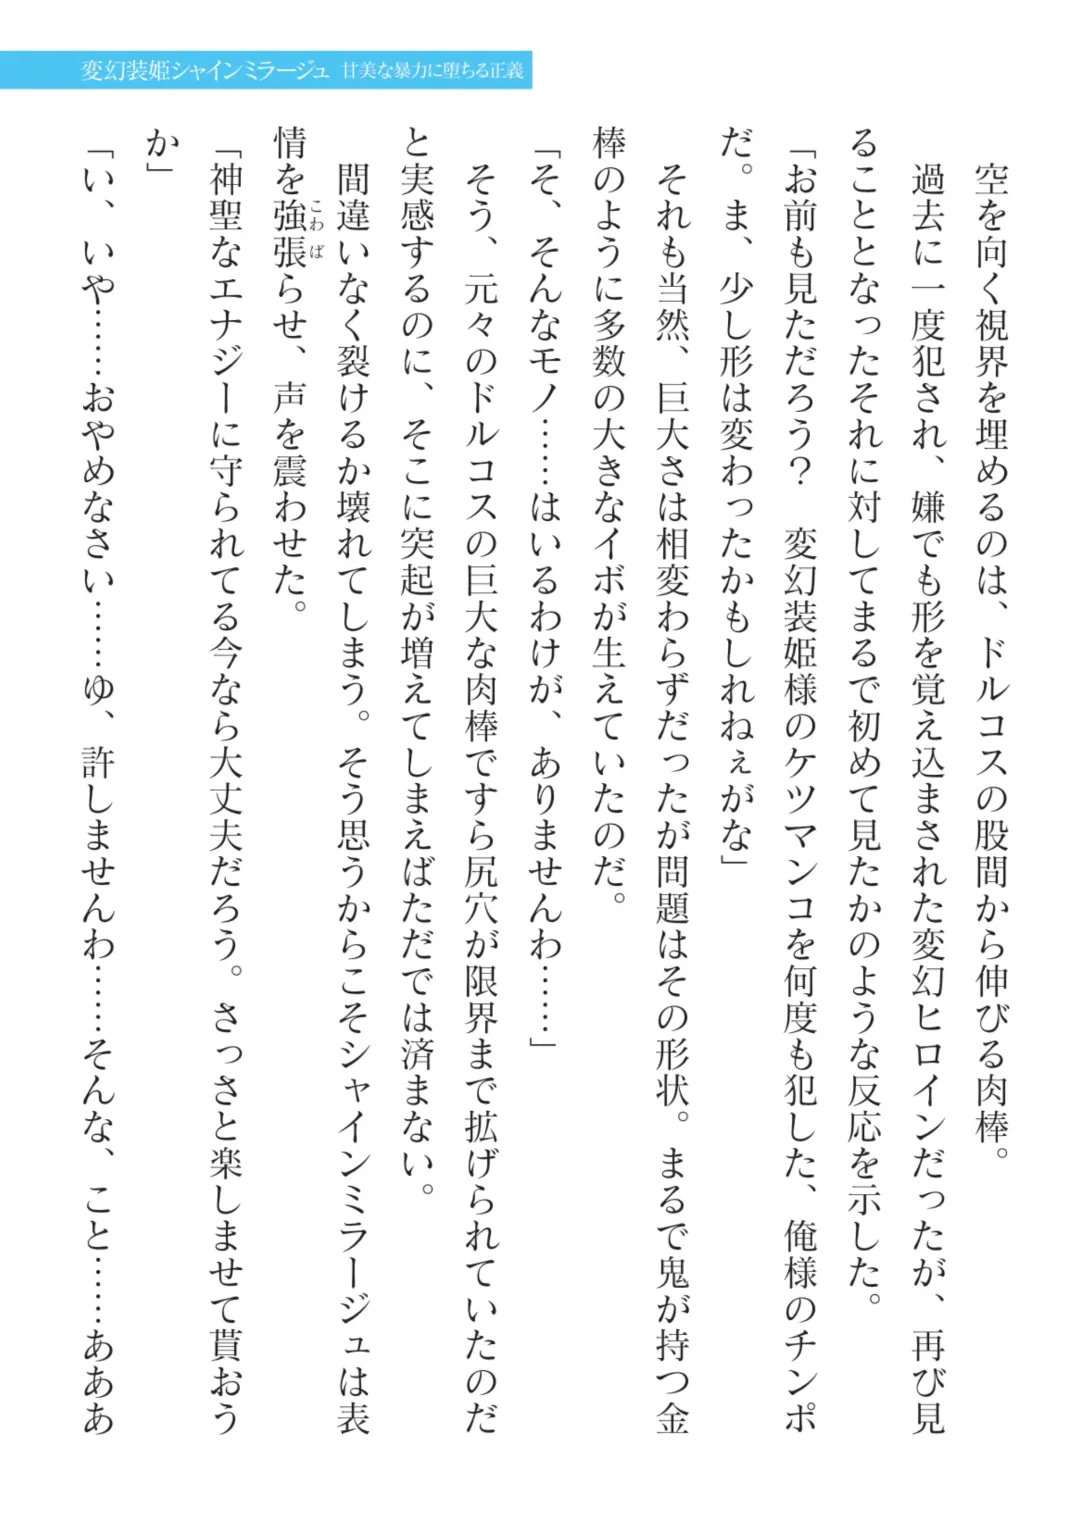 変幻装姫シャインミラージュ 甘美な暴力に堕ちる正義
空を向く視界を埋めるのは、ドルコスの股間から伸びる肉棒。
過去に一度犯され、嫌でも形を覚え込まされた変幻ヒロインだったが、再び見
ることとなったそれに対してまるで初めて見たかのような反応を示した。
「お前も見ただろう？　変幻装姫様のケツマンコを何度も犯した、俺様のチンポ
だ。ま、少し形は変わったかもしれねぇがな」
それも当然、巨大さは相変わらずだったが問題はその形状。まるで鬼が持つ金
棒のように多数の大きなイボが生えていたのだ。
「そ、そんなモノ……はいるわけが、ありませんわ……」
そう、元々のドルコスの巨大な肉棒ですら尻穴が限界まで拡げられていたのだ
と実感するのに、そこに突起が増えてしまえばただでは済まない。
間違いなく裂けるか壊れてしまう。そう思うからこそシャインミラージュは表
情を強張らせ、声を震わせた。
こわば
「神聖なエナジーに守られてる今なら大丈夫だろう。さっさと楽しませて貰おう
か」
「い、いや……おやめなさい……ゆ、許しませんわ……そんな、こと……あああ